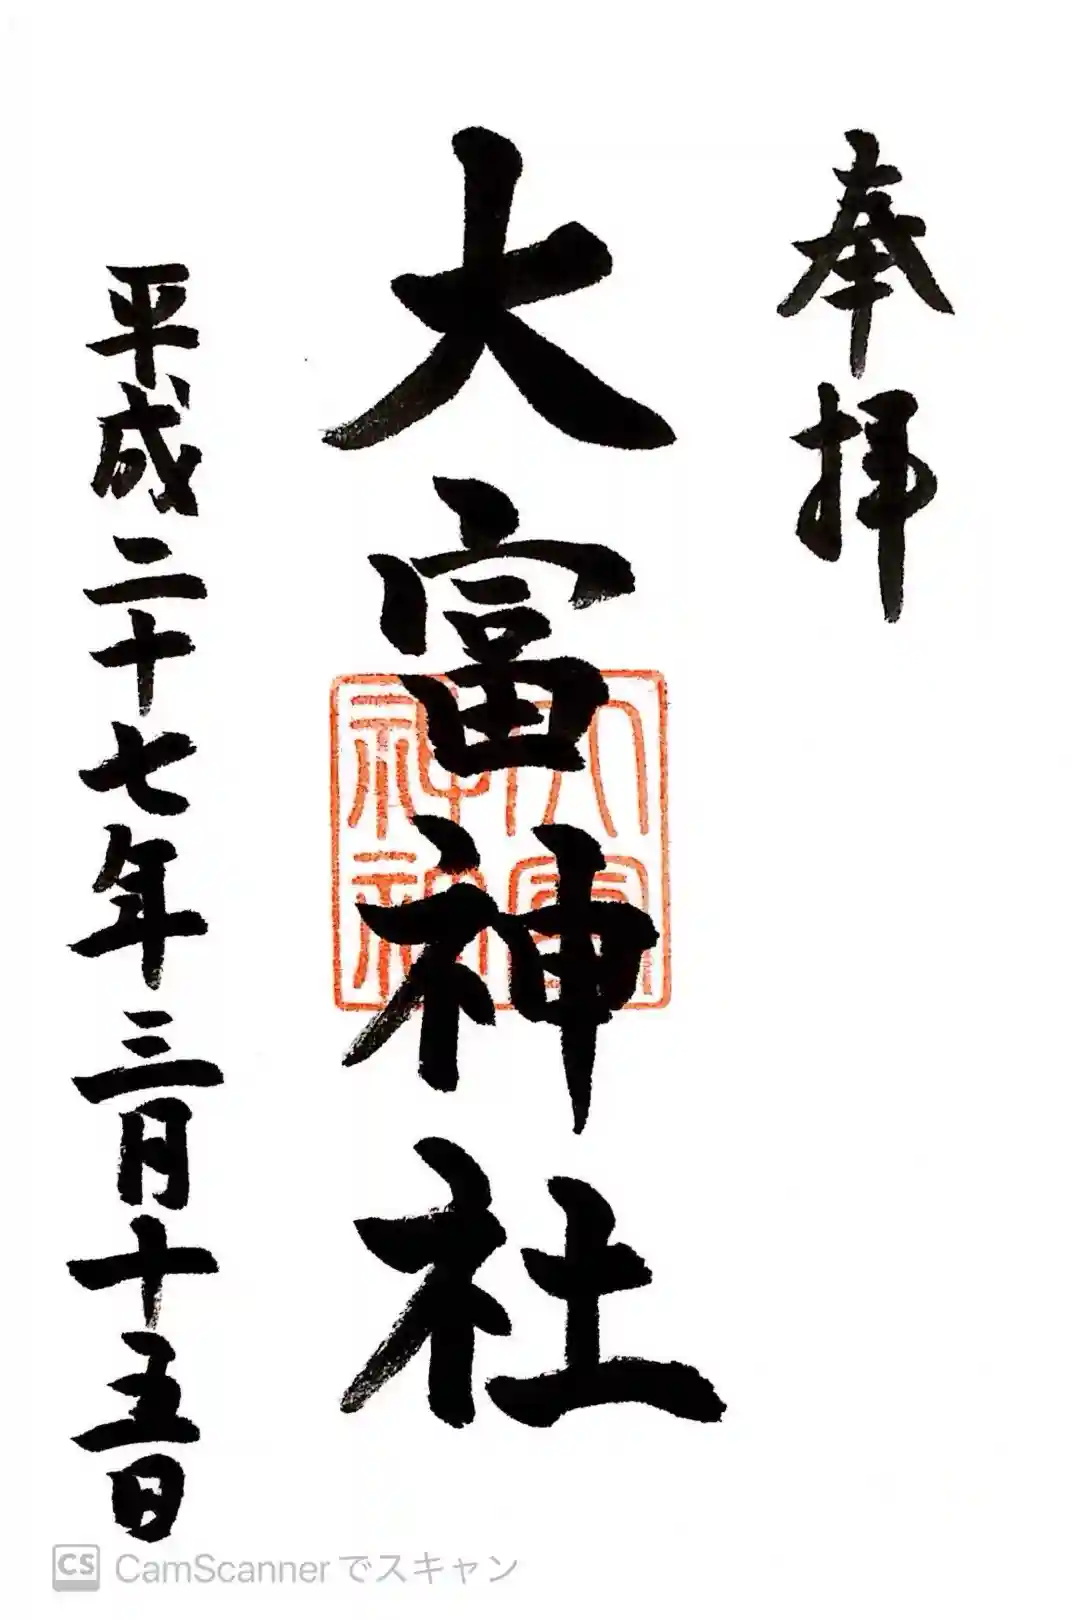 奉拝
大富神社
平成二十七年三月十五日
CS CamScannerでスキャン